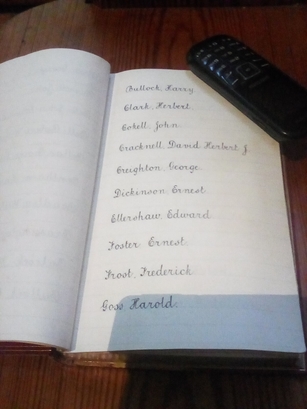 Bullock, Harry
Clark, Herbert.
Cotell, John
Cracknell, David Herbert J.
Creighton George
Dickinson Ernest
Ellershaw, Edward
Foster Ernest
Frost, Frederick
Goss Harold.